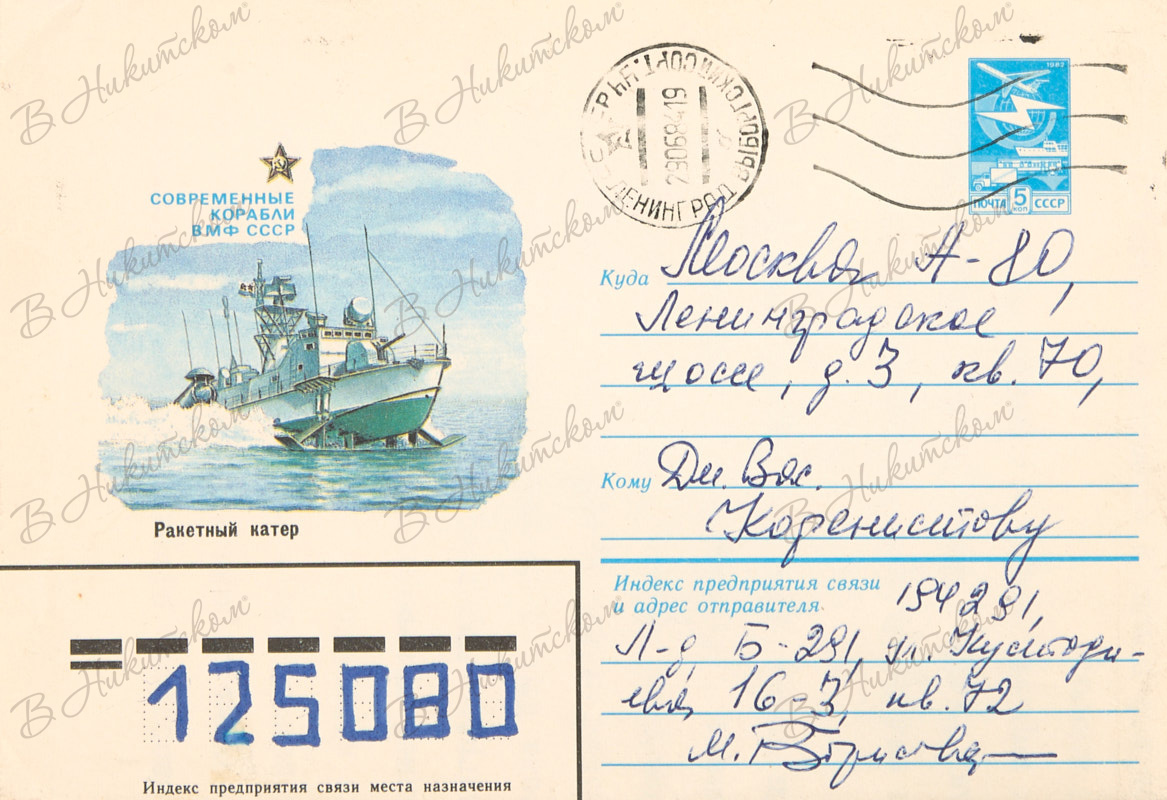 СОВРЕМЕННЫЕ
КОРАБЛИ
ВМФ СССР
Ракетный катер
ЛЕНИНГРАД
290684 19
1982
ПОЧТА 5 КОП СССР
Куда Москва А-80,
Ленинградское
шоссе, д. 3, кв. 70,
Кому Дм. Вяс.
Индекс предприятия связи
и адрес отправителя 194291,
Л-д Б-291, ул. Кустоди-
ева, 16 3, кв. 72
М.
125080
Индекс предприятия связи места назначения
В Никитском